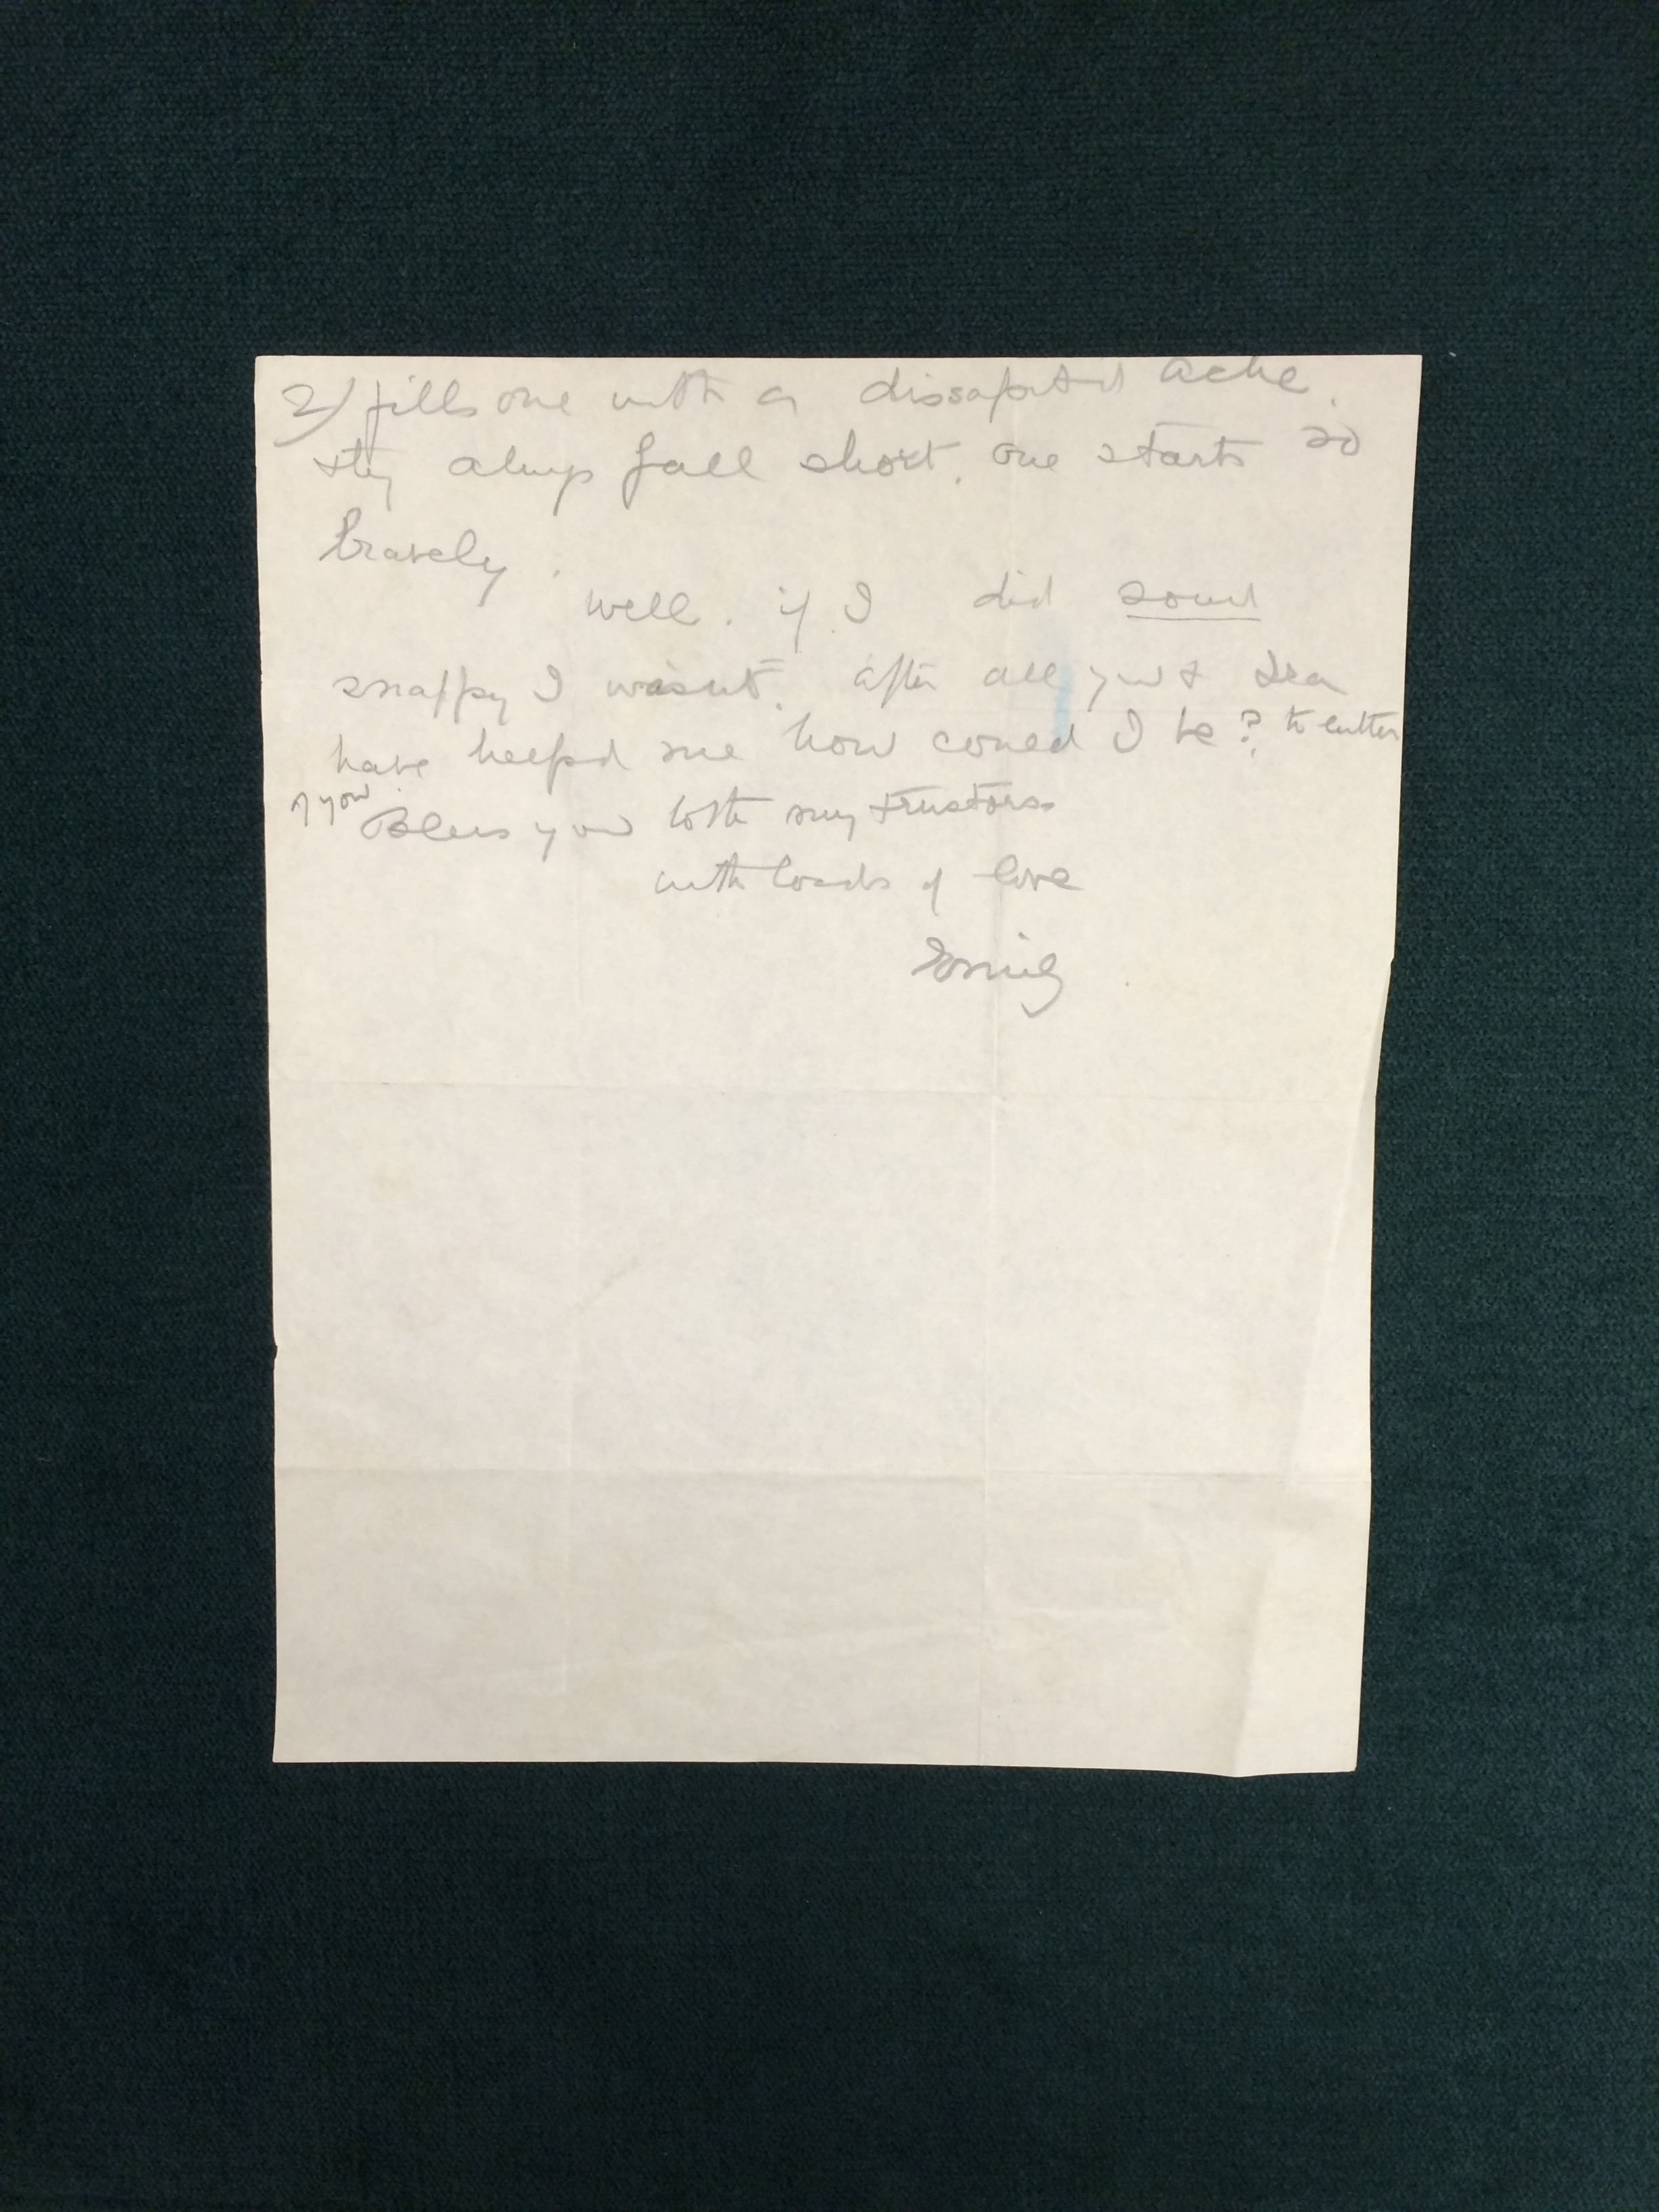 2) fills one with a dissapointed ache.
they always fall short. one starts so
bravely.
well. if I did sound
snappy I wasnt. after all you &
have helped me how could I be? to either
of you
Bless you both my trustors.
with loads of love